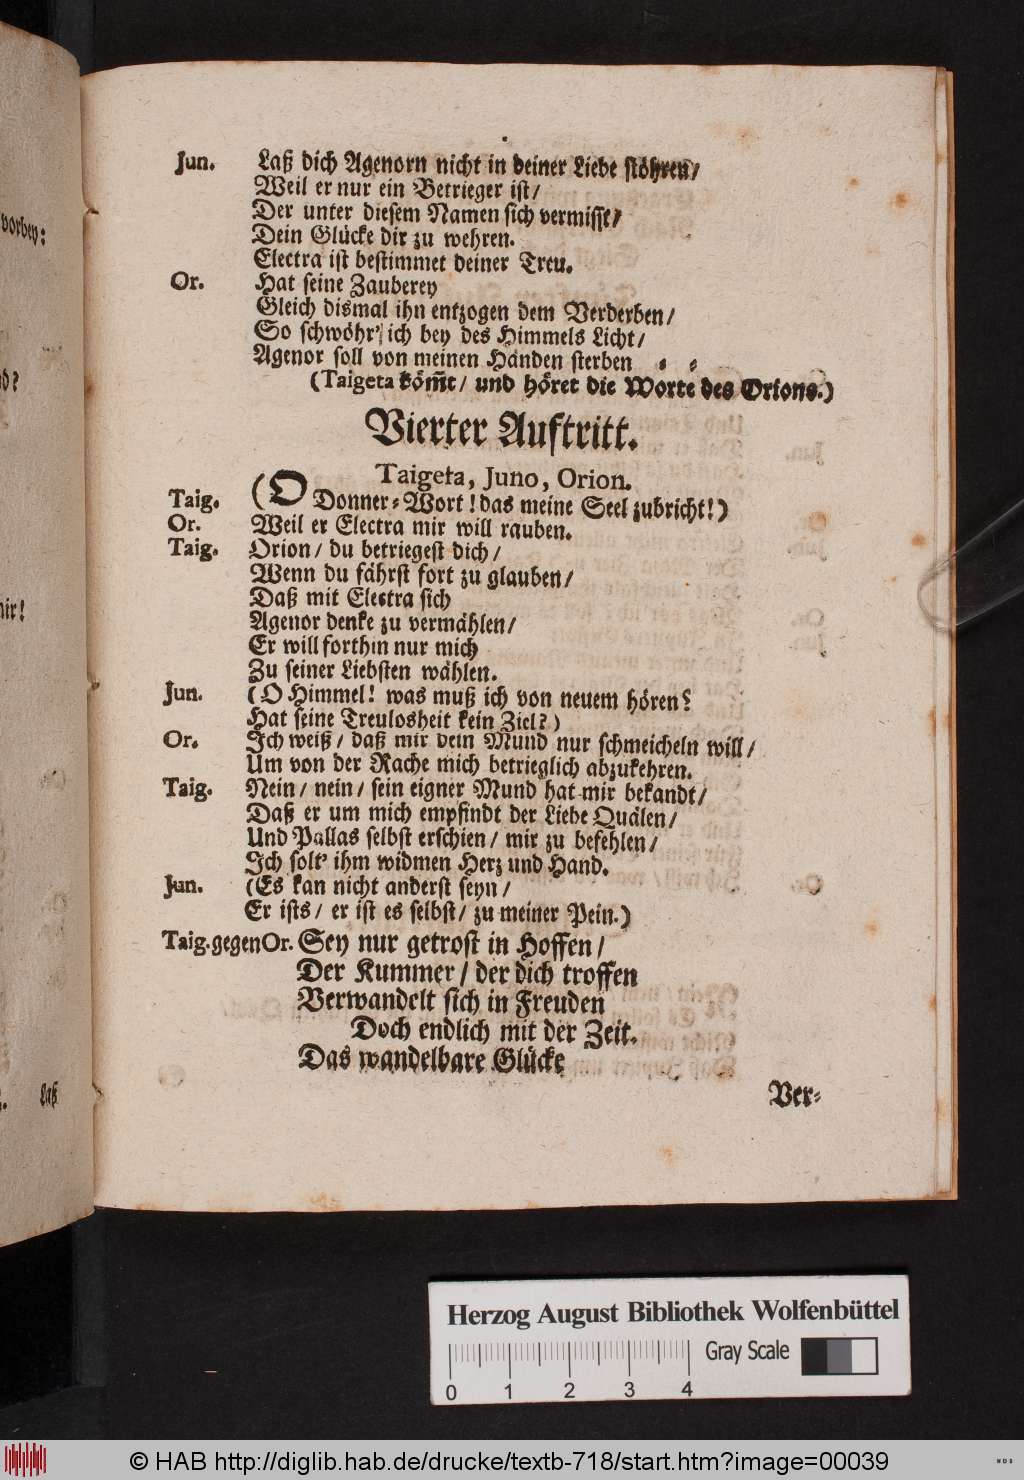 vorbey:
mir!
Laß
Jun. Laß dich Agenorn nicht in deiner Liebe stöhren/
Weil er nur ein Betrieger ist/
Der unter diesem Namen sich vermisst/
Dein Glücke dir zu wehren.
Electra ist bestimmet deiner Treu.
Or. Hat seine Zauberey
Gleich dismal ihn entzogen dem Verderben/
So schwöhr' ich bey des Himmels Licht/
Agenor soll von meinen Händen sterben = =
(Taigeta köm̃t/ und höret die Worte des Orions.)
Vierter Auftritt.
Taigeta, Juno, Orion.
Taig. (O Donner=Wort! das meine Seel zubricht!)
Or. Weil er Electra mir will rauben.
Taig. Orion/ du betriegest dich/
Wenn du fährst fort zu glauben/
Daß mit Electra sich
Agenor denke zu vermählen/
Er will forthin nur mich
Zu seiner Liebsten wählen.
Jun. (O Himmel! was muß ich von neuem hören?
Hat seine Treulosheit kein Ziel?)
Or. Ich weiß/ daß mir dein Mund nur schmeicheln will/
Um von der Rache mich betrieglich abzukehren.
Taig. Nein/ nein/ sein eigner Mund hat mir bekandt/
Daß er um mich empfindt der Liebe Quälen/
Und Pallas selbst erschien/ mir zu befehlen/
Ich solt' ihm widmen Herz und Hand.
Jun. (Es kan nicht anderst seyn/
Er ists/ er ist es selbst/ zu meiner Pein.)
Taig. gegen Or. Sey nur getrost in Hoffen/
Der Kummer/ der dich troffen
Verwandelt sich in Freuden
Doch endlich mit der Zeit.
Das wandelbare Glücke
Ver=
Herzog August Bibliothek Wolfenbüttel
Gray Scale
0 1 2 3 4
© HAB http://diglib.hab.de/drucke/textb-718/start.htm?image=00039